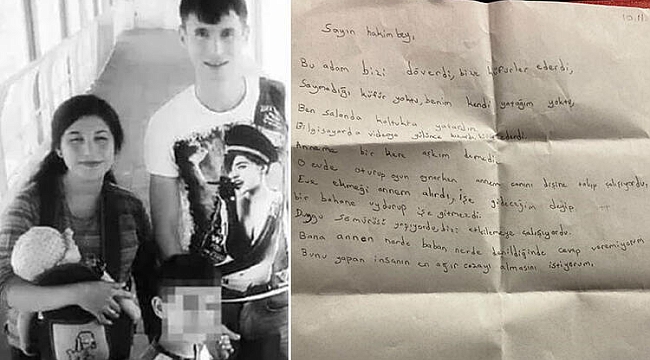 10.11
Sayın hakim bey,
Bu adam bizi döverdi, bize küfürler ederdi,
Saymadığı küfür yoktu, benim kendi yatağım yoktu,
Ben salonda koltukta yatardım
Bilgisayarda videoya ederdi.
Anneme bir kere aşkım demedi.
O evde oturup oyun oynarken annem canını dişine takıp çalışıyordu,
Eve ekmeği annem alırdı, işe gideceğim deyip
bir bahane uydurup işe gitmezdi.
Duygu sömürüsü yapıyordu, bizi etkilemeye çalışıyordu.
Bana annen nerde baban nerde denildiğinde cevap veremiyorum
Bunu yapan insanın en ağır cezayı almasını istiyorum.